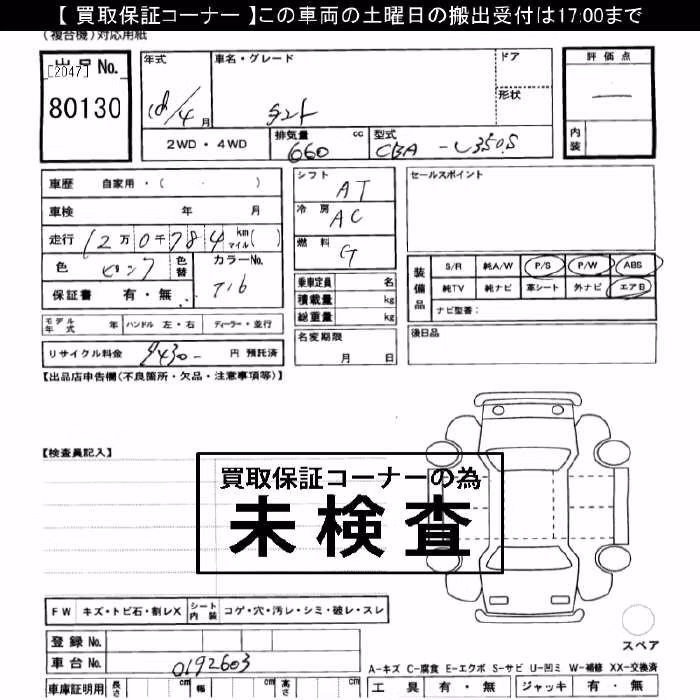 【 買取保証コーナー 】この車両の土曜日の搬出受付は17:00まで
(複合機)対応用紙
出品 No.
[2047]
80130
年式
18/4 月
車名・グレード
タント
ドア
形状
評価点
内装
2WD・4WD
排気量 cc
660
型式
CBA - L350S
車歴 自家用・( ・ )
車検 年 月
走行 12万0千784 km マイル( )
色 ピンク 色替
カラーNo.
T16
保証書 有・無
シフト AT
冷房 AC
燃料 G
乗車定員 名
積載量 kg
総重量 kg
セールスポイント
装備品 S/R 純A/W P/S P/W ABS
純TV 純ナビ 革シート 外ナビ エアB
ナビ型番:
モデル年式 年 ハンドル 左・右 ディーラー・並行
名変期限
月 日
後日品
リサイクル料金 9430- 円 預託済
【出品店申告欄(不良箇所・欠品・注意事項等)】
【検査員記入】
買取保証コーナーの為
未検査
FW キズ・トビ石・割レX シート内装 コゲ・穴・汚レ・シミ・破レ・スレ
登録 No.
車台 No. 0192603
スペア
A-キズ C-腐食 E-エクボ S-サビ U-凹ミ W-補修 XX-交換済
車庫証明用 長さ cm 幅 cm 高さ cm
工具 有・無 ジャッキ 有・無